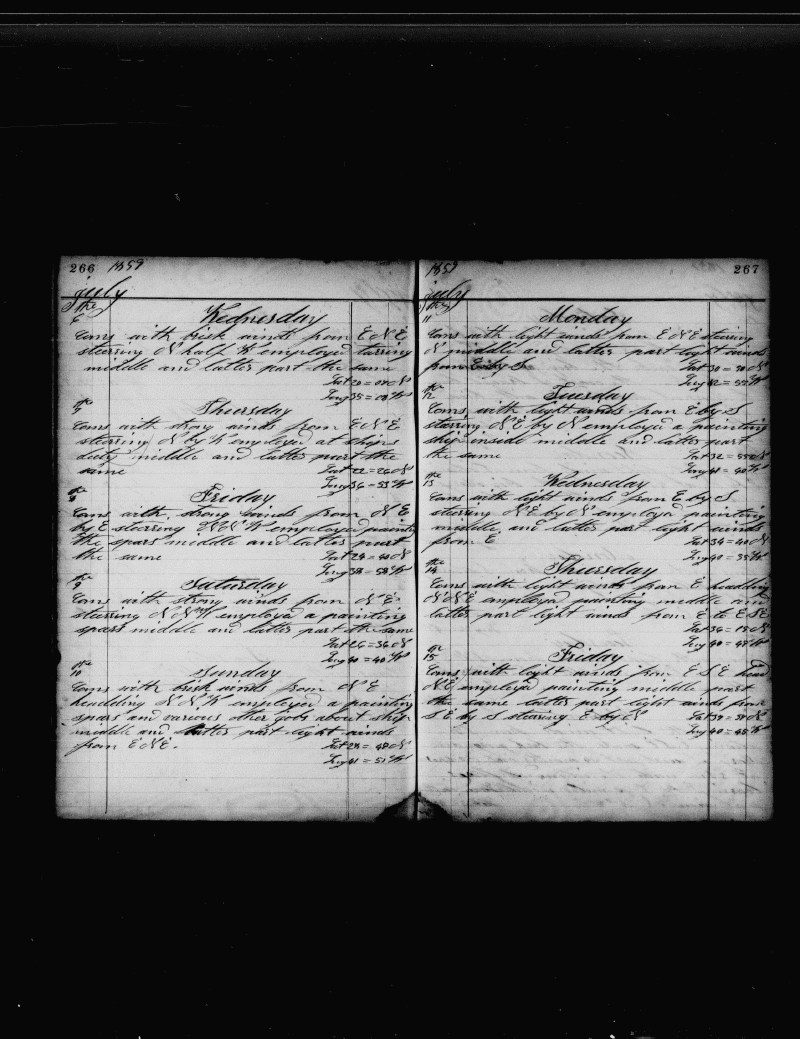 266 1859
July
the
6 Wednesday
Coms with brisk winds from E N E
stearing N half W employed taring
middle and latter part the same
Lat 20 = 00 N
Long 35 = 08 W
the
7 Thursday
Coms with strong winds from E N E
stearing N by W employed at ships
duty middle and latter part the
same Lat 22 = 26 N
Long 36 = 53 W
the
8 Friday
Coms with strong winds from N E
by E stearing N N W employed painting
the spars middle and latter part
the same Lat 24 = 40 N
Long 38 = 58 W
the
9 Saturday
Coms with strong winds from N E
stearing N N W employed a painting
spars middle and latter part the same
Lat 26 = 36 N
Long 40 = 40 W
the
10 Sunday
Coms with brisk winds from N E
headding N N W employed a painting
spars and various other jobs about ship
middle and latter part light winds
from E N E. Lat 28 = 48 N
Long 41 = 51 W
1859 267
July
the
11 Monday
Coms with light winds from E N E stearing
N middle and latter part light winds
from E by S Lat 30 = 50 N
Long 42 = 52 W
the
12 Tuesday
Coms with light winds from E by S
stearing N E by N employed a painting
ship inside middle and latter part
the same Lat 32 = 55 N
Long 41 = 40 W
the
13 Wednesday
Coms with light winds from E by S
stearing N E by N employed painting
middle and latter part light winds
from E Lat 34 = 40 N
Long 40 = 35 W
the
14 Thursday
Coms with light winds from E headding
N N E employed painting middle and
latter part light winds from E to E S E
Lat 36 = 15 N
Long 40 = 48 W
the
15 Friday
Coms with light winds from E S E head
N E employed painting middle part
the same latter part light winds from
S E by S stearing E by N Lat 37 = 37 N
Long 40 = 45 W